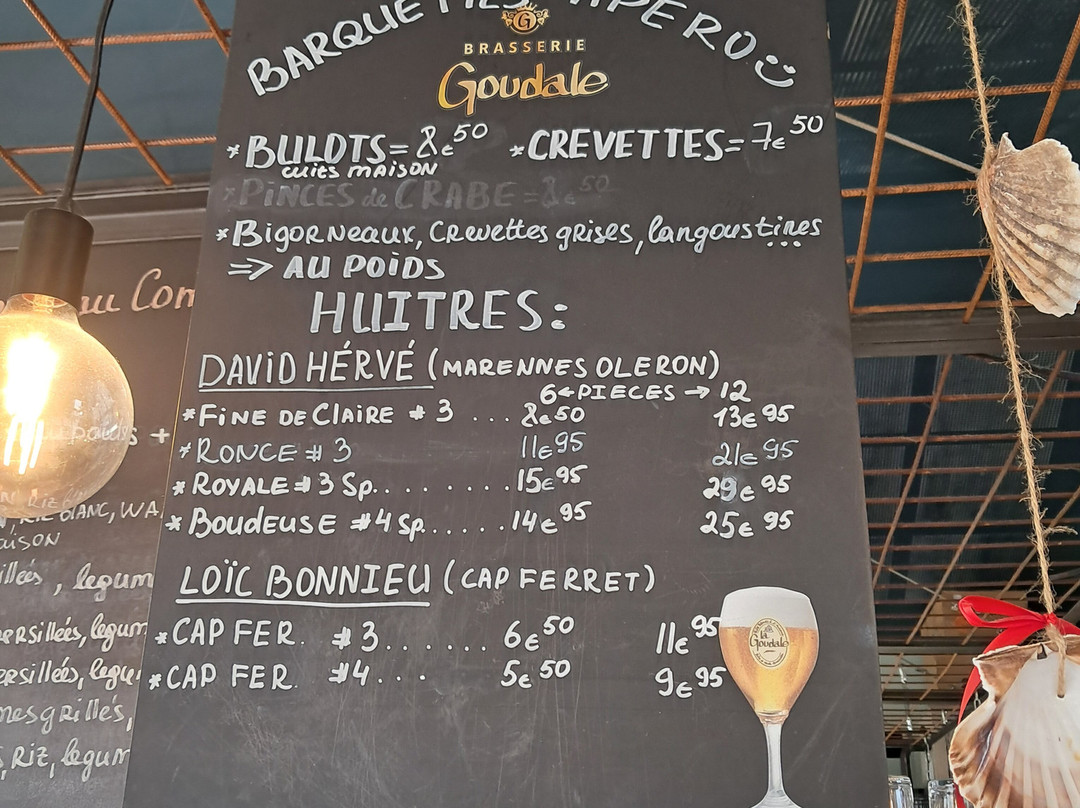 BARQUETTES APERO
BRASSERIE
Goudale
*BULOTS=8€50 *CREVETTES=7€50
cuits MAISON
*PINCES de CRABE=8€50
*BigORNeaux, CRevettes grises, langoustines
=> AU POIDS
HUITRES:
DAVID HÉRVÉ (MARENNES OLERON)
6←PIECES→12
*FINE DE CLAIRE #3 ... 8€50 13€95
*RONCE #3 11€95 21€95
*ROYALE #3 Sp......... 15€95 29€95
*BOUDEUSE #4 Sp...... 14€95 25€95
LOÏC BONNIEU (CAP FERRET)
*CAP FER. #3....... 6€50 11€95
*CAP FER. #4... 5€50 9€95
la Goudale
au Com
+
RIZ BLANC, WA
AISON
illées, legum
ersillées, legum
ersillées, legu
nes grillés,
, RIZ, legum